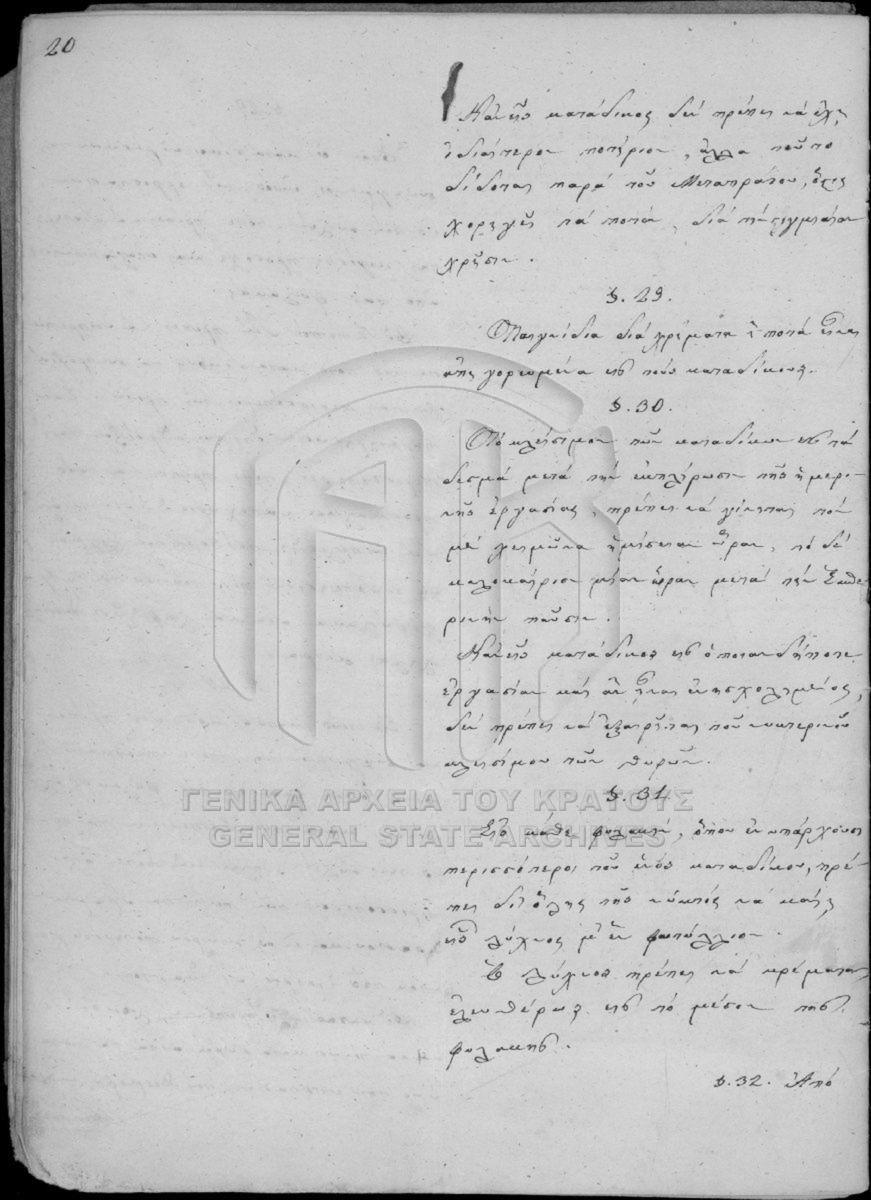 20
Κανεὶς κατάδικος δὲν πρέπει νὰ ἔχῃ
ἰδιαίτερον ποτήριον, ἀλλὰ τοῦτο
δίδοται παρὰ τοῦ Μεταπράτου, ὅςις
χορηγεῖ τὰ ποτὰ, διὰ τὴν ςιγμιαίαν
χρῆσιν.
§. 29.
Παιγνίδια διὰ χρήματα ἢ ποτὰ εἶναι
ἀπηγορευμένα εἰς τοὺς καταδίκους.
§. 30.
Τὸ κλείσιμον τῶν καταδίκων εἰς τὰ
δεσμὰ μετὰ τὴν ἐκπλήρωσιν τῆς ἡμερι-
νῆς ἐργασίας, πρέπει νὰ γίνηται τὸν
μὲ χειμῶνα ἡμίσειαν ὥραν, τὸ δὲ
καλοκαίριον μίαν ὥραν μετὰ τὴν ἑσπε
ρινὴν παῦσιν.
Κανεὶς κατάδικος εἰς ὁποιανδήποτε
ἐργασίαν καὶ ἂν ἦναι ἐνησχολημένος,
δὲν πρέπει νὰ ἐξαιρῆται τοῦ νυκτερινοῦ
κλεισίμου τῶν θυρῶν.
§. 31
Εἰς κάθε φυλακὴν, ὅπου ἐνυπάρχουσι
περισσότεροι τοῦ ἑνὸς καταδίκου, πρέ-
πει δι' ὅλης τῆς νύκτὸς νὰ καίῃ
εἷς λύχνος μ' ἓν φυτύλλιον.
Ὁ λύχνος πρέπει νὰ κρέμαται
ἐλευθέρως εἰς τὸ μέσον τῆς
φυλακῆς.
§. 32. Ἀπὸ
ΓΕΝΙΚΑ ΑΡΧΕΙΑ ΤΟΥ ΚΡΑΤΟΥΣ
GENERAL STATE ARCHIVES